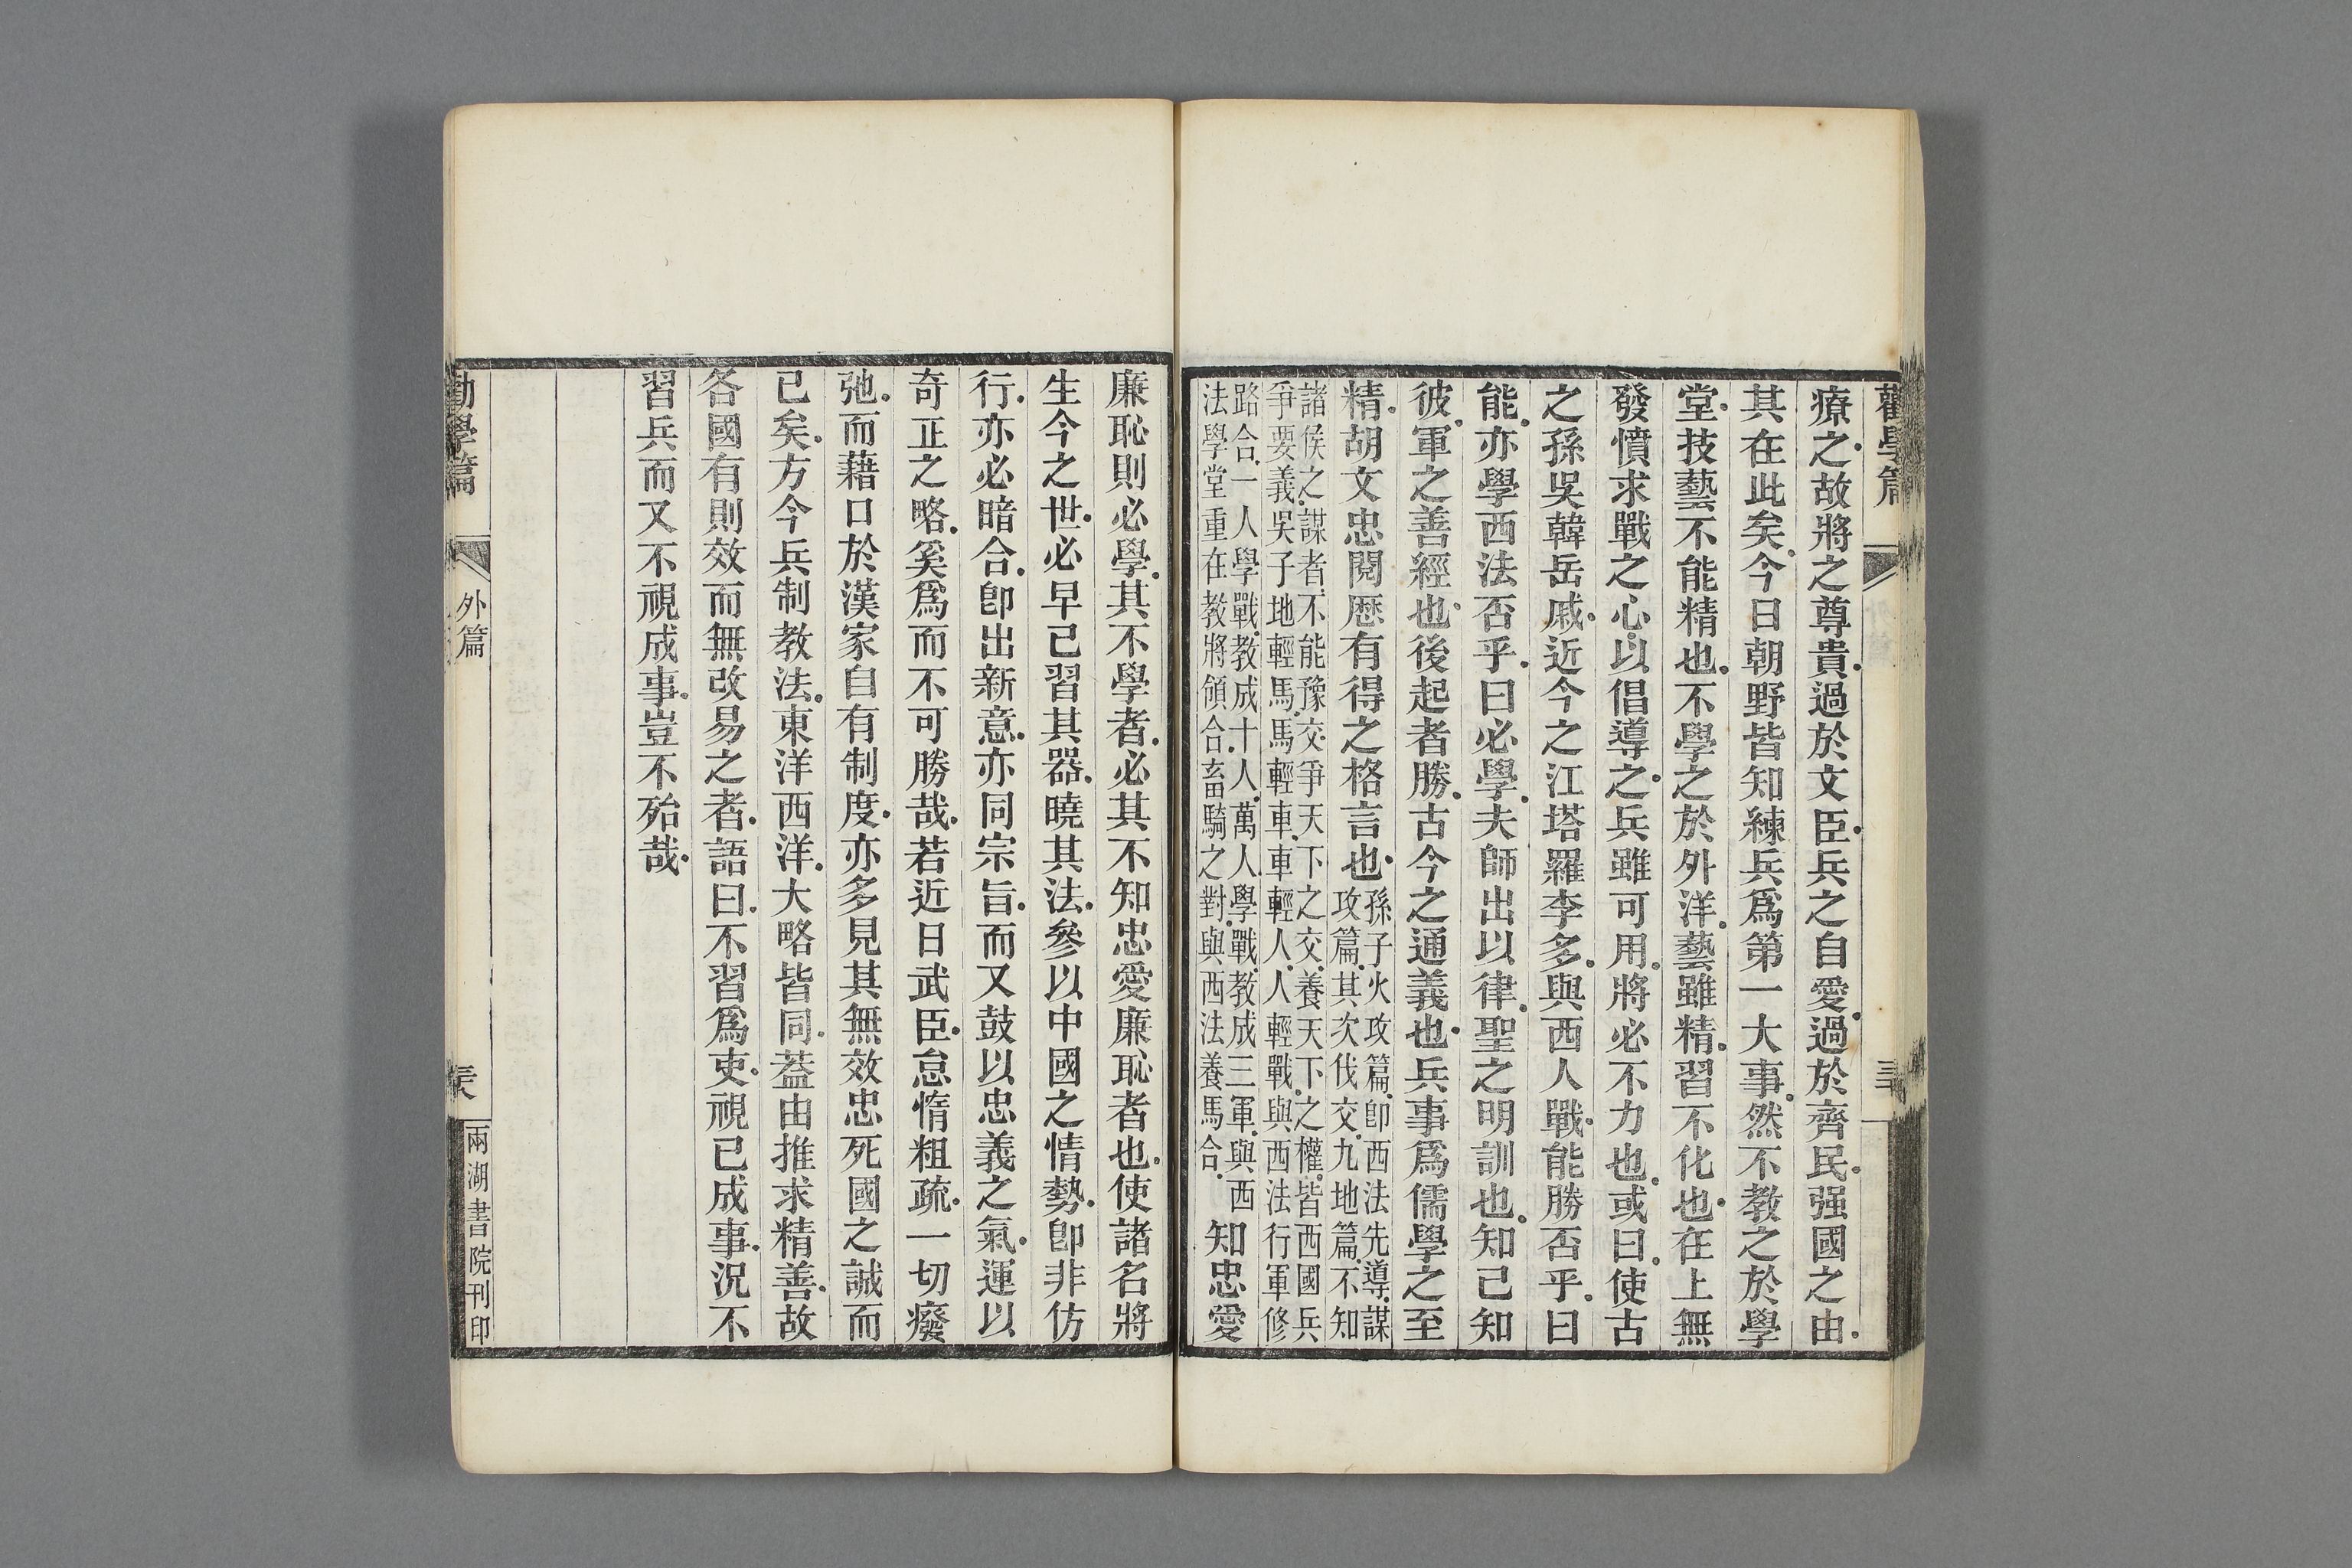 勸學篇
療之故將之尊貴過於文臣兵之自愛過於齊民强國之由
其在此矣今日朝野皆知練兵爲第一大事然不教之於學
堂技藝不能精也不學之於外洋藝雖精習不化也在上無
發憤求戰之心以倡導之兵雖可用將必不力也或曰使古
之孫吳韓岳戚近今之江塔羅李多與西人戰能勝否乎曰
能亦學西法否乎曰必學夫師出以律聖之明訓也知己知
彼軍之善經也後起者勝古今之通義也兵事爲儒學之至
精胡文忠閱歷有得之格言也
孫子火攻篇卽西法先導謀
攻篇其次伐交九地篇不知
諸侯之謀者不能豫交爭天下之交養天下之權皆西國兵
爭要義吳子地輕馬馬輕車車輕人人輕戰與西法行軍修
路合一人學戰教成十人萬人學戰教成三軍與西
法學堂重在教將領合畜騎之對與西法養馬合
知忠愛
廉恥則必學其不學者必其不知忠愛廉恥者也使諸名將
生今之世必早已習其器曉其法參以中國之情勢卽非仿
行亦必暗合卽出新意亦同宗旨而又鼓以忠義之氣運以
奇正之略奚爲而不可勝哉若近日武臣怠惰粗疏一切癈
弛而藉口於漢家自有制度亦多見其無效忠死國之誠而
已矣方今兵制教法東洋西洋大略皆同蓋由推求精善故
各國有則效而無改易之者語曰不習爲吏視已成事況不
習兵而又不視成事豈不殆哉
勸學篇
外篇
兩湖書院刊印